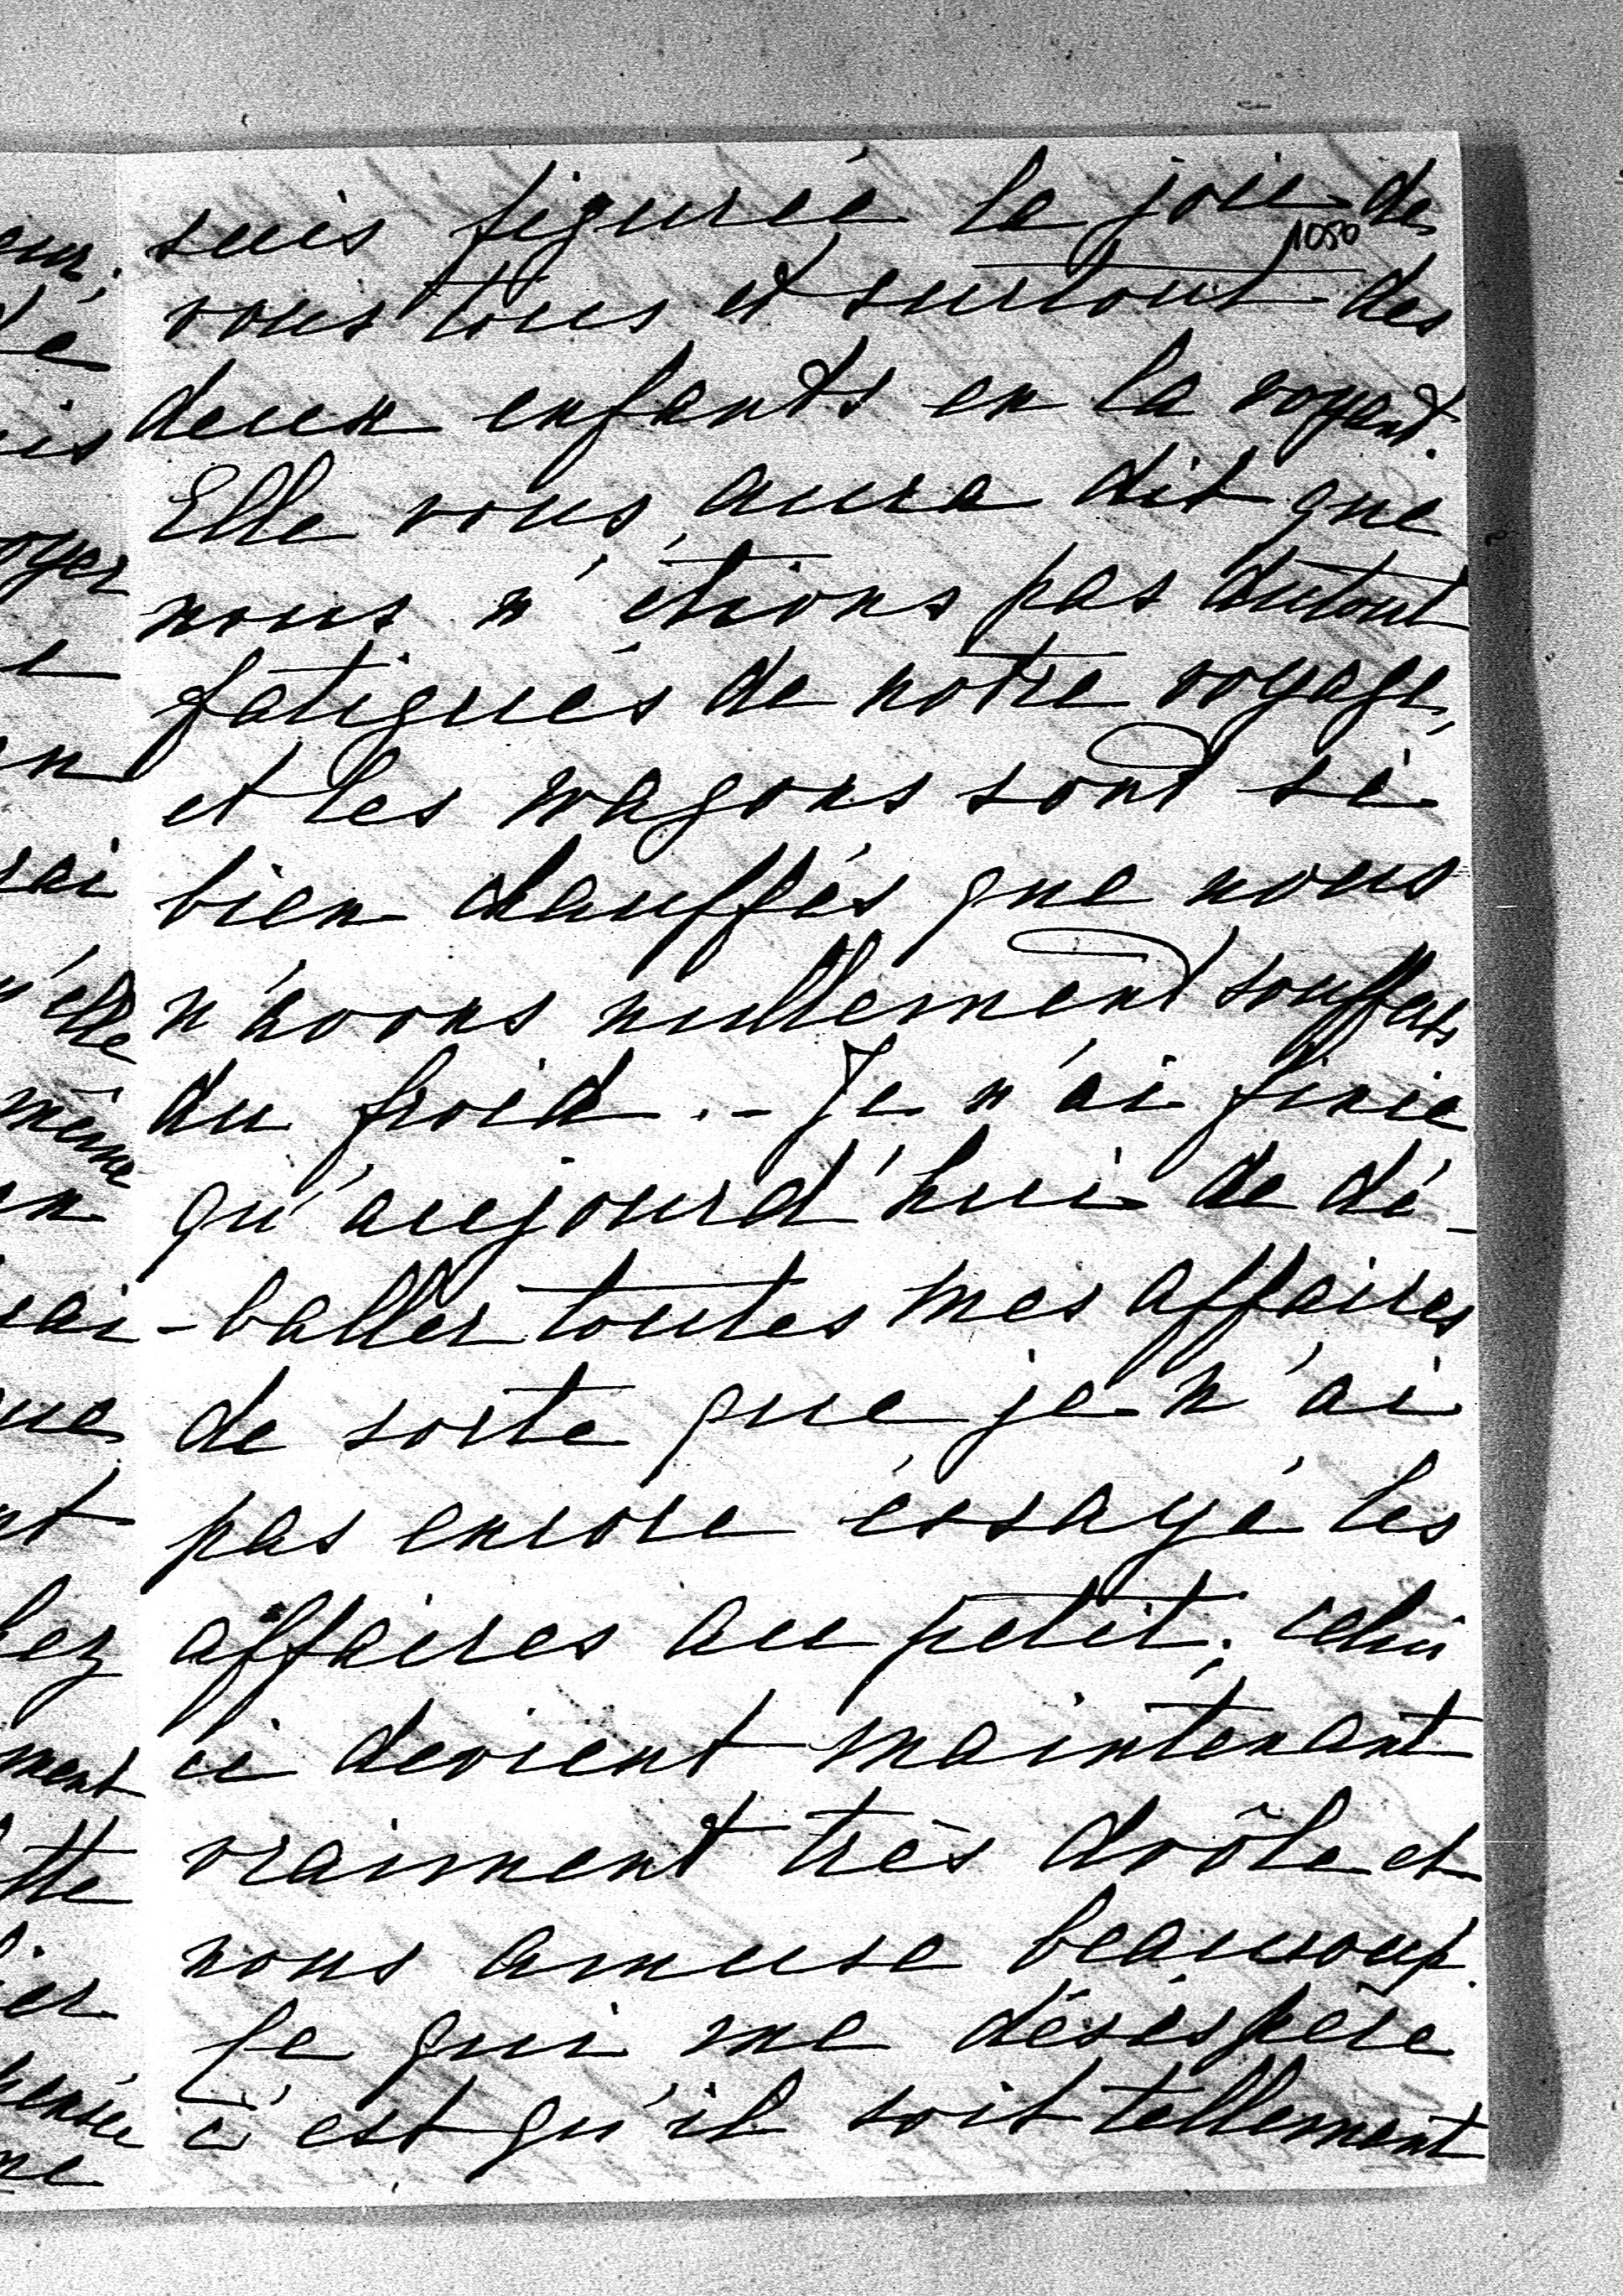 suis figurée la joie de
1080
vous tous et surtout des
deux enfants en la voyant.
Elle vous aura dit que
nous n'étions pas dutout
fatigués de notre voyage,
et les wagons sont si
bien chauffés que nous
n'avons nullement souffert
du froid. - Je n'ai finie
qu'aujourd'hui de dé-
-baller toutes mes affaires
de sorte que je n'ai
pas encore éssayé les
affaires au petit; celui
ci devient maintenant
vraiment très drôle et
nous amuse beaucoup.
Ce qui me désespère
c'est qu'il soit tellement